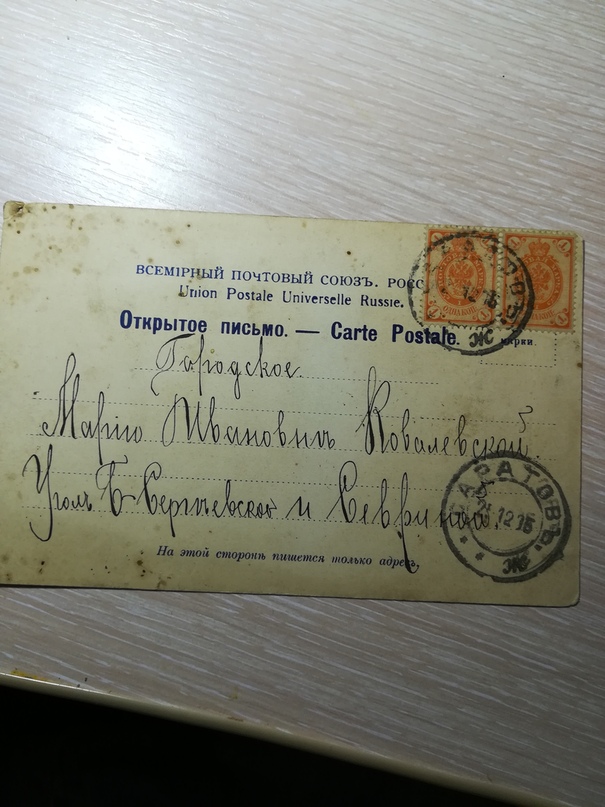 ВСЕМІРНЫЙ ПОЧТОВЫЙ СОЮЗЪ. РОСС
Union Postale Universelle Russie.
Открытое письмо. — Carte Postale.
марки.
Городское.
Маріи Ивановнѣ Ковалевской.
Уголъ Б Сергіевской и Севриной,
САРАТОВЪ
12 15
Ж
На этой сторонѣ пишется только адресъ.